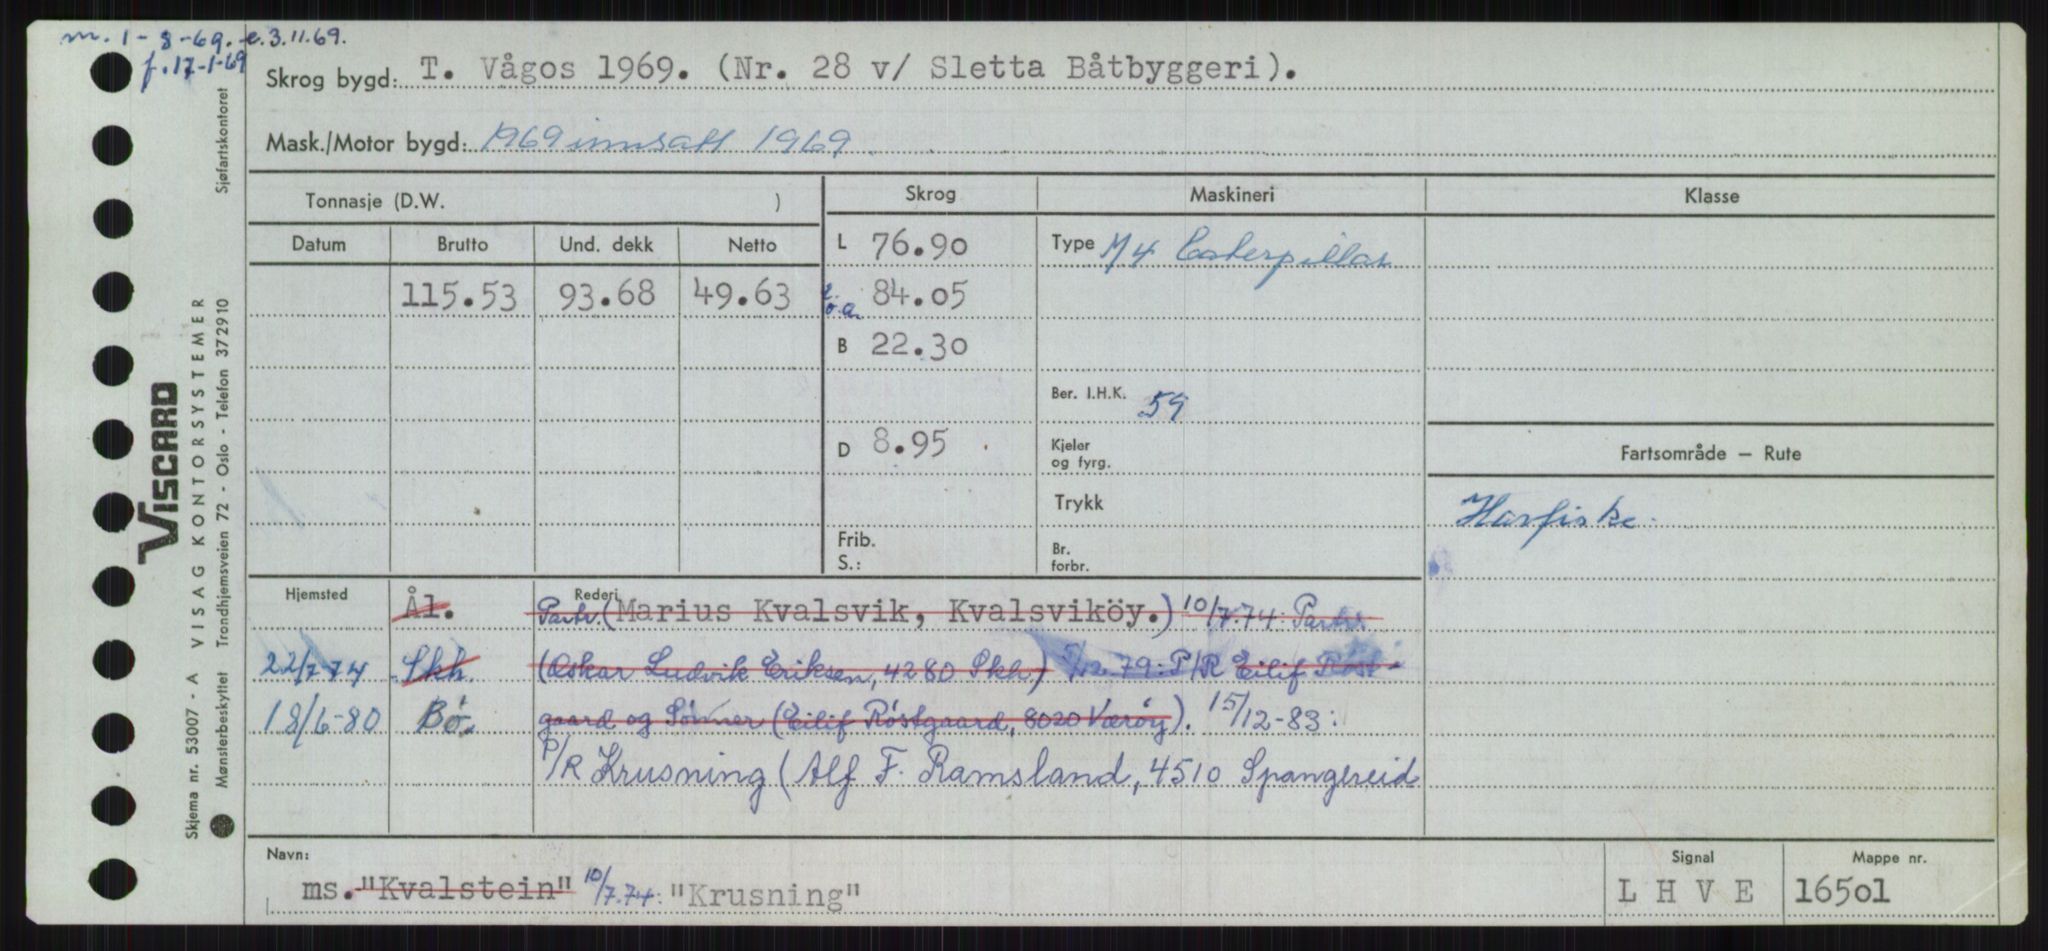 m. 1-8-69. e.3.11.69.
f.17-1-69
Skrog bygd: T. Vågos 1969. (Nr. 28 v/ Sletta Båtbyggeri).
Mask./Motor bygd: 1969 innsatt 1969.
Tonnasje (D.W. )
Skrog Maskineri Klasse
Datum Brutto Und. dekk Netto
L 76.90 Type M/4 Caterpillar
115.53 93.68 49.63 L.o.a. 84.05
B 22.30
Ber. I.H.K. 59
D 8.95 Kjeler og fyrg.
Fartsområde – Rute
Trykk
Havfiske.
Frib.
S.:
Br. forbr.
Hjemsted Rederi
Ål. Partr. (Marius Kvalsvik, Kvalsviköy.) 10/7.74: Partr.
22/7-74 Skh. (Oskar Ludvik Eriksen, 4280 Skh.) /12.79: P/R Eilif Røst-
18/6-80 Bø. gaard og Sønner (Eilif Røstgaard, 8020 Værøy). 15/12-83:
P/R Krusning (Alf F. Ramsland, 4510 Spangereid
Navn:
ms. "Kvalstein" 10/7.74: "Krusning"
Signal
L H V E
Mappe nr.
16501
Sjøfartskontoret
VISCARD
VISAG KONTORSYSTEMER
Trondhjemsveien 72 - Oslo - Telefon 372910
Skjema nr. 53007 - A
Mønsterbeskyttet